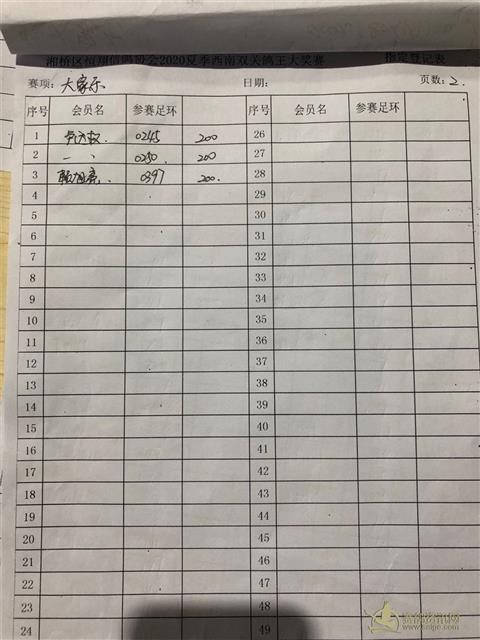 湘桥区恒翔信鸽协会2020夏季西南双关鸽王大奖赛 指定登记表
赛项：大家乐 日期： 页数：2.
序号 会员名 参赛足环 序号 会员名 参赛足环
1 0245 200 26
2 一 、 0250 200 27
3 0397 200 28
4 29
5 30
6 31
7 32
8 33
9 34
10 35
11 36
12 37
13 38
14 39
15 40
16 41
17 42
18 43
19 44
20 45
21 46
22 47
23 48
24 49